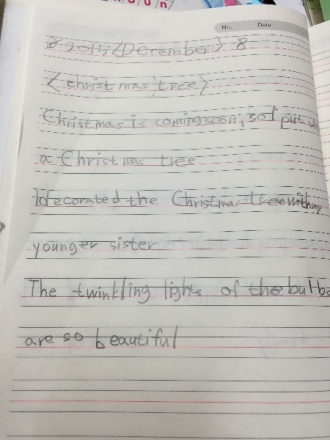 No. Date
2015 <December> 8
<christmas tree>
Christmas is coming soon, so I put u
a Christmas tree
I decorated the Christmas tree with my
younger sister
The twinkling lights of the bulbs
are so beautiful